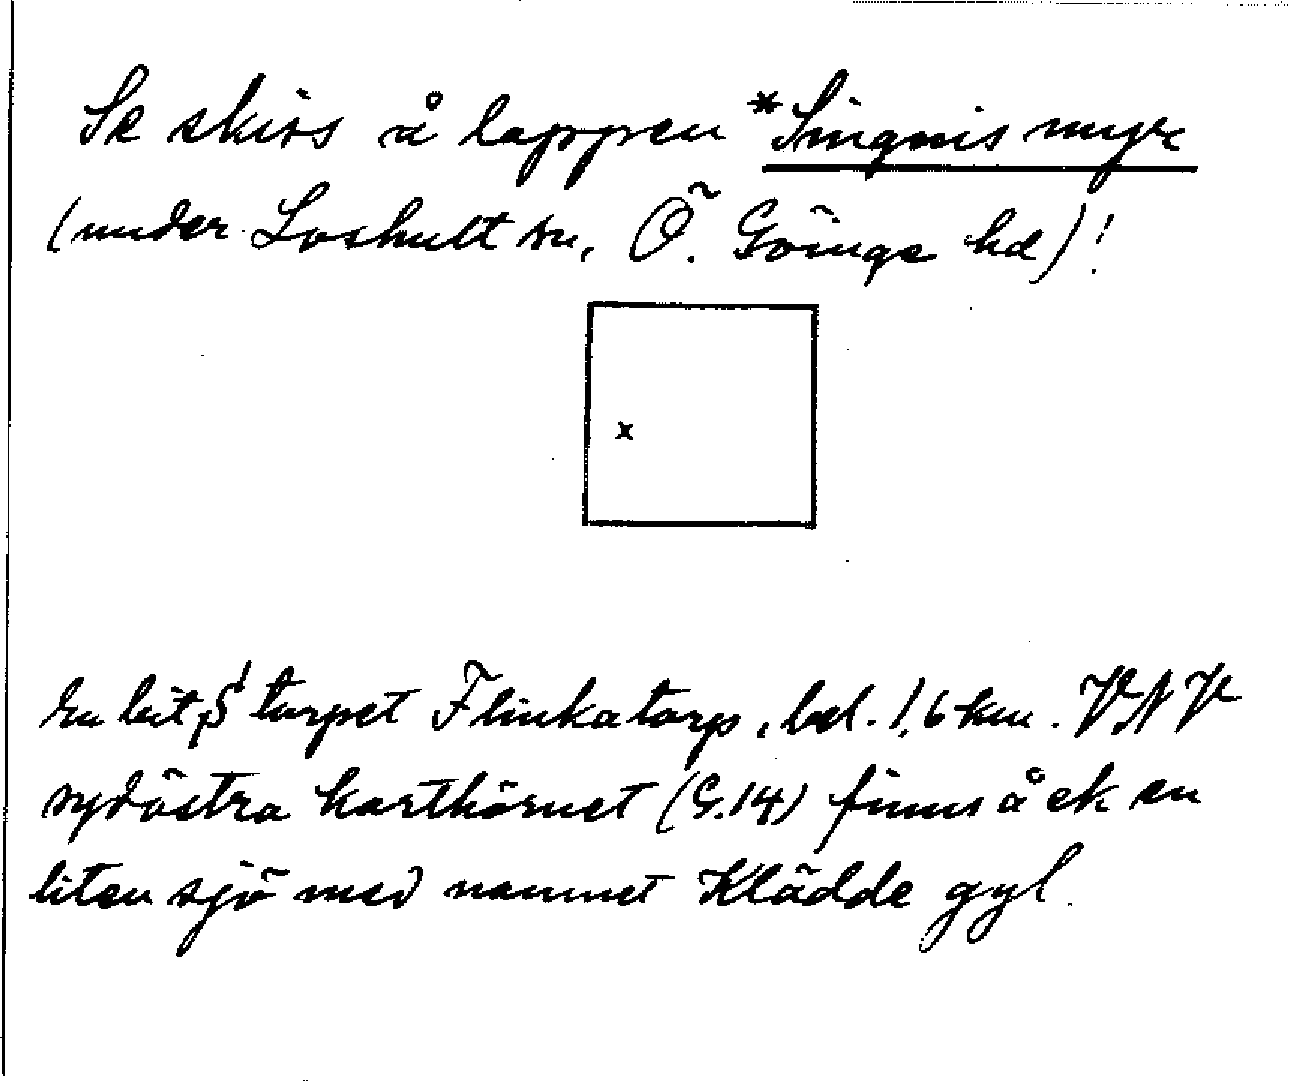 Se skiss å lappen *Singmis myr
(under Loshult sn, Ö. Göinge hd)!
x
En bit S torpet Flinkatorp, bel. 1,6 km. VNV
sydöstra karthörnet (G.14) finns å ek en
liten sjö med namnet Klädde gyl.